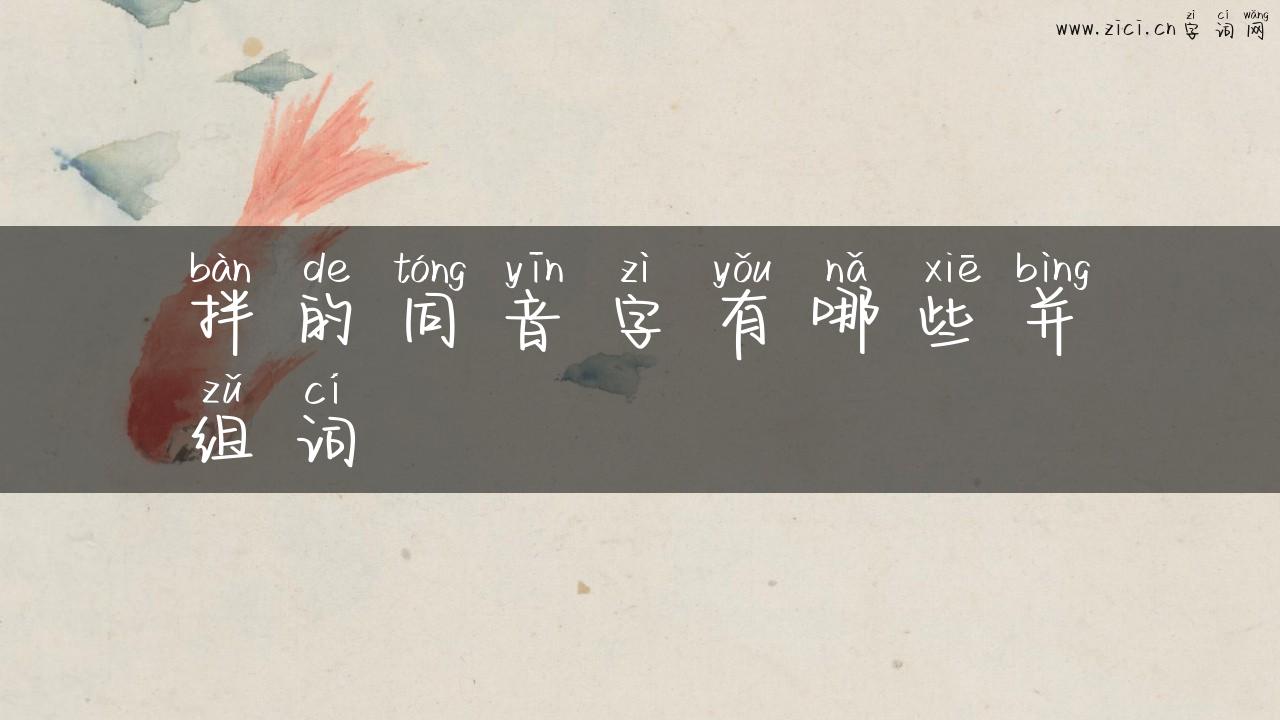 zì cí wǎng
www.zici.cn 字 词 网
bàn de tóng yīn zì yǒu nǎ xiē bìng
拌 的 同 音 字 有 哪 些 并
zǔ cí
组 词